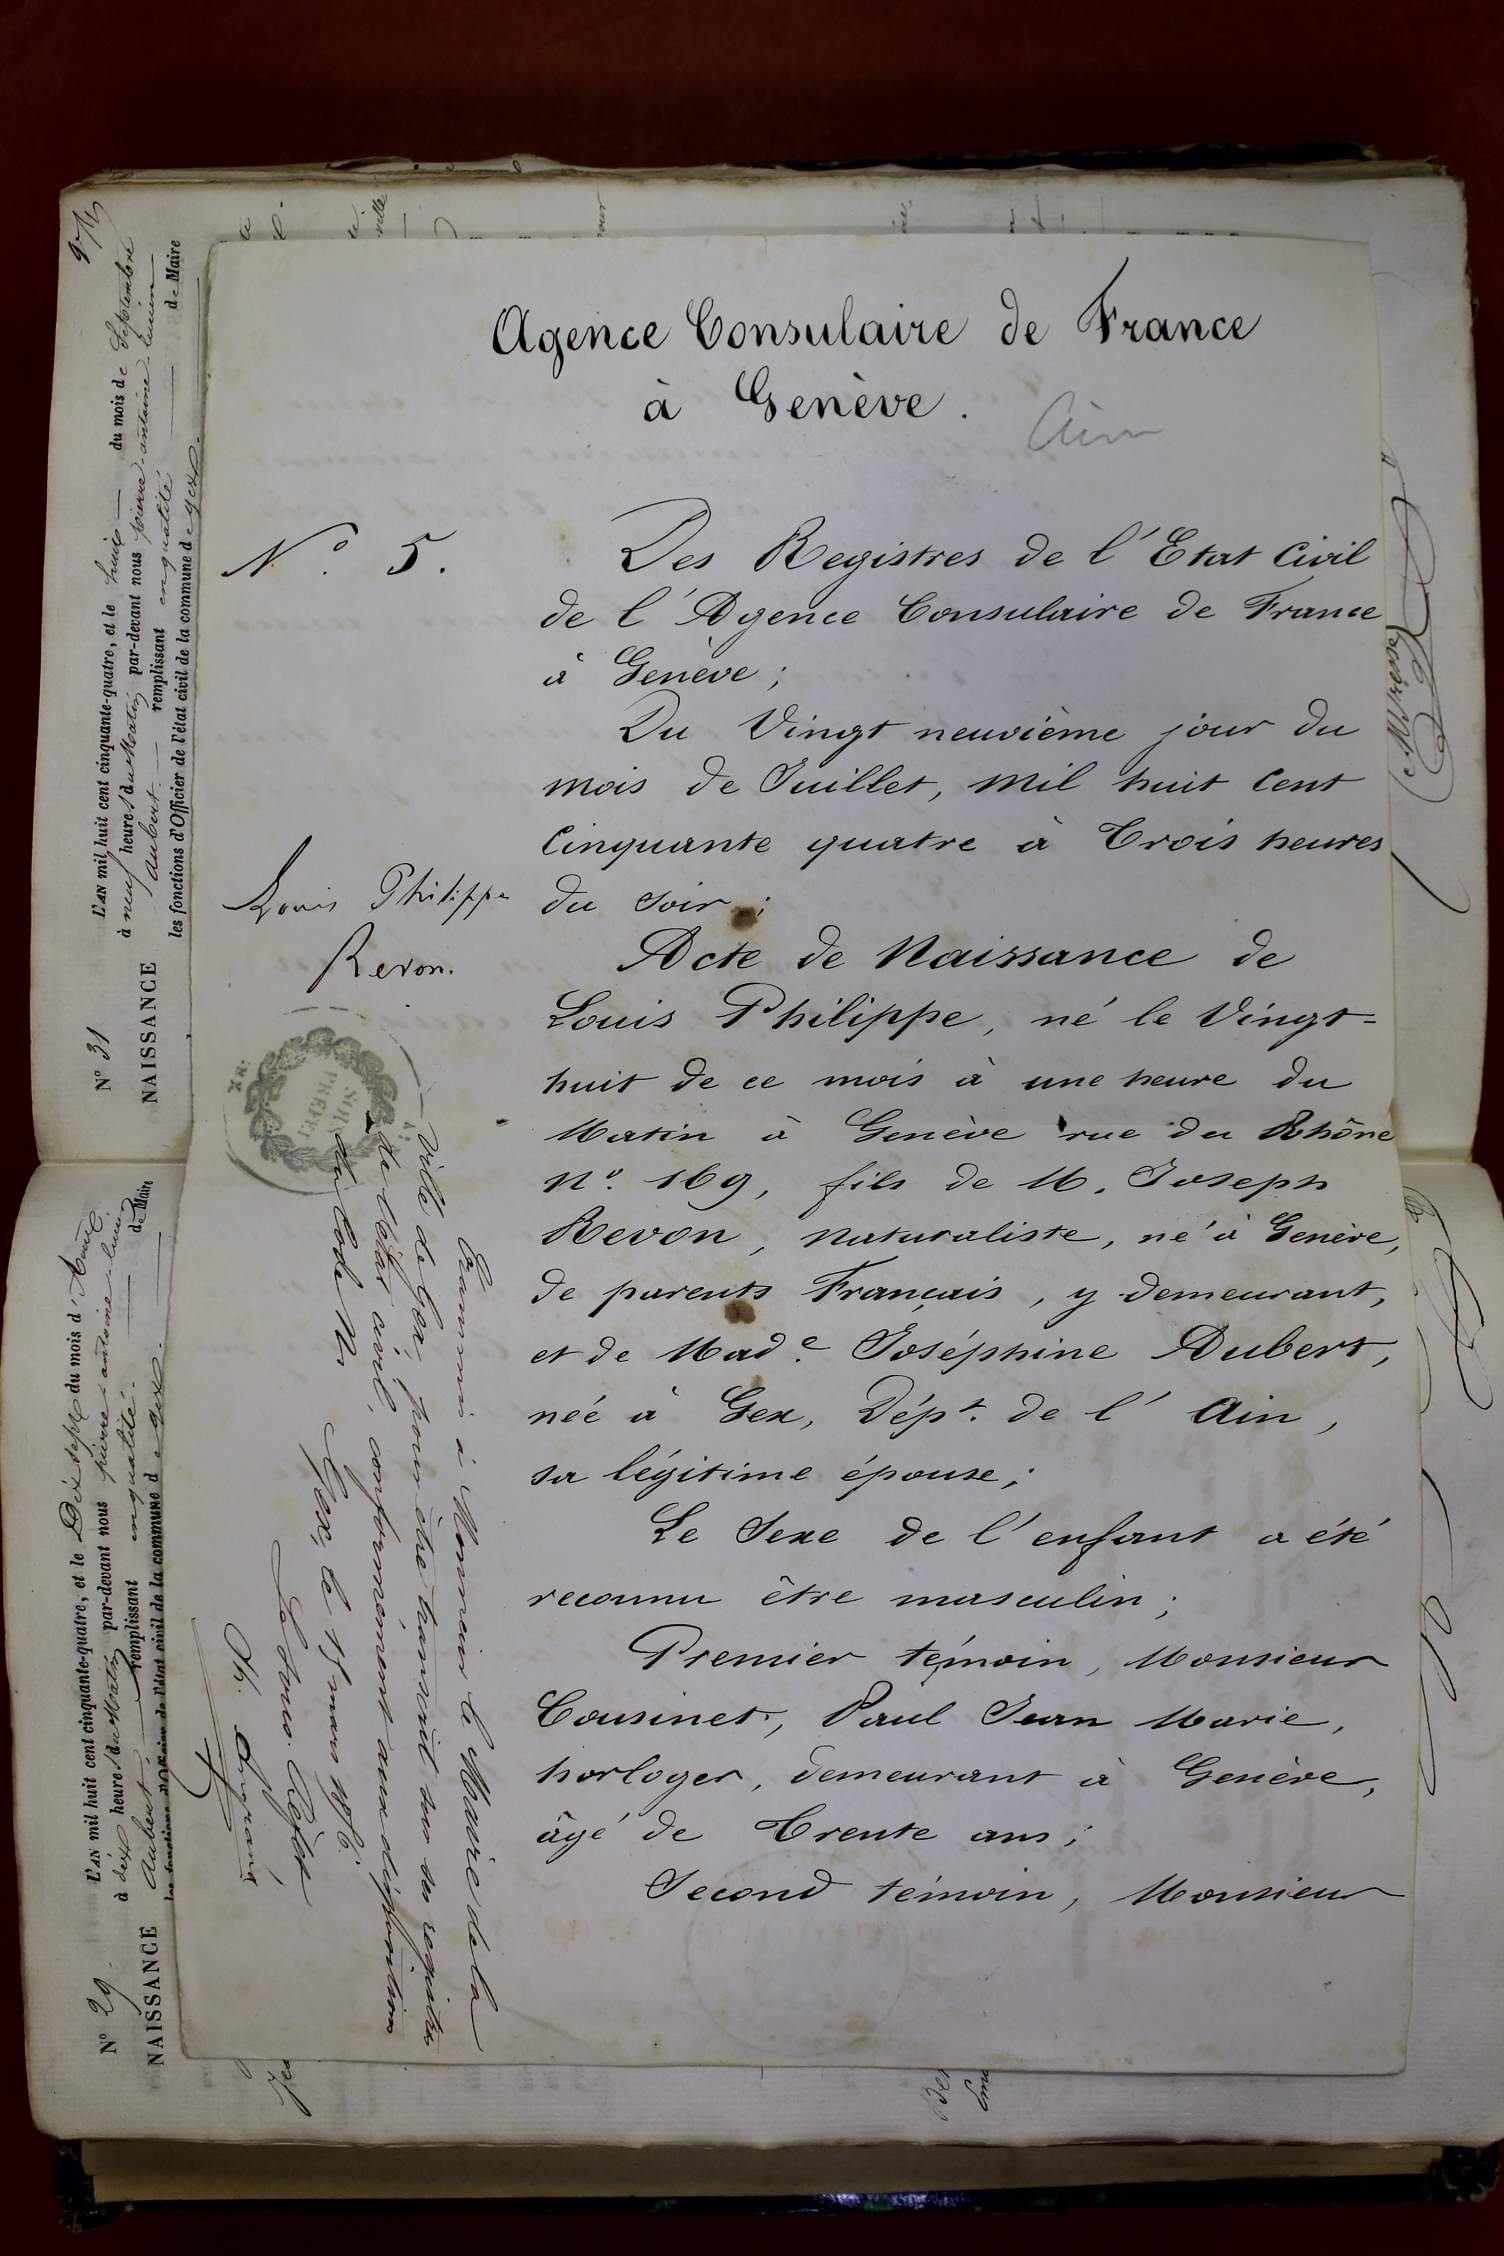 Agence Consulaire de France
à Genève.
Ain
N° 5.
Des Registres de l'Etat Civil
de l'Agence Consulaire de France
à Genève ;
Du Vingt neuvième jour du
mois de Juillet, mil huit Cent
Cinquante quatre à Trois heures
du Soir ;
Louis Philippe
Revon.
Acte de Naissance de
Louis Philippe, né le Vingt=
huit de ce mois à une heure du
Matin à Genève rue du Rhône
N°. 169, fils de M. Joseph
Revon, Naturaliste, né à Genève,
de parents Français, y demeurant,
et de Made. Joséphine Aubert,
née à Gex, Dépt. de l'Ain,
sa légitime épouse ;
Le Sexe de l'enfant a été
reconnu être masculin ;
Premier témoin, Monsieur
Cousinet, Paul Jean Marie,
horloger, demeurant à Genève,
âgé de Trente ans ;
Second témoin, Monsieur
SOUS
PREFET
Transmis à Monsieur le Maire de la
Ville de Gex, pour être transcrit sur ses registres
de l'état civil, conformément aux dispositions
du Code N.
Gex, le 15 mars
Le Sous-Préfet
N° 31
NAISSANCE
L'AN mil huit cent cinquante-quatre, et le huit du mois de Septembre
à neuf heures du Matin par-devant nous pierre antoine lucien
Aubert remplissant en qualité de Maire
les fonctions d'Officier de l'état civil de la commune de Gex.
N° 29
NAISSANCE
L'AN mil huit cent cinquante-quatre, et le Dix sept du mois d'Aout
à dix heures du Matin par-devant nous pierre antoine lucien
Aubert remplissant en qualité de Maire
les fonctions d'Officier de l'état civil de la commune de Gex.